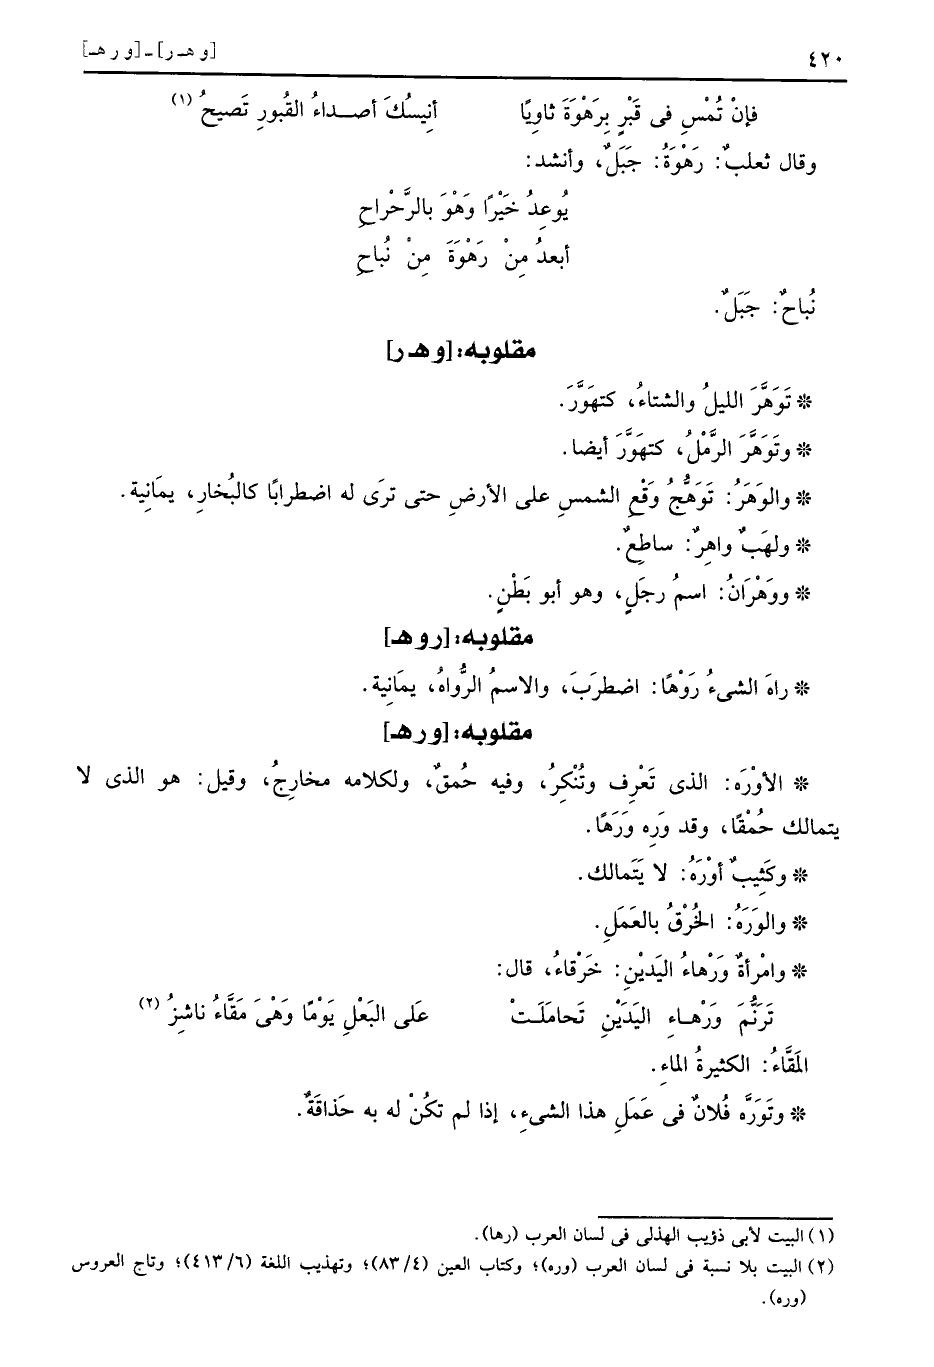 ٤٢٠ [و هـ ر] ـ [و ر هـ]
فإنْ تُمْسِ فى قَبْرٍ بِرَهْوَةَ ثاوِيًا أنِيسُكَ أصـداءُ القُبورِ تَصيحُ (١)
وقال ثعلبٌ: رَهْوَةُ: جَبَلٌ، وأنشد:
يُوعِدُ خَيْرًا وَهْوَ بالرَّحْراحِ
أبعدُ مِنْ رَهْوَةَ مِنْ نُباحِ
نُباحٌ: جَبَلٌ.
مقلوبه: [و هـ ر]
* تَوَهَّرَ الليلُ والشتاءُ، كتهَوَّرَ.
* وتَوَهَّرَ الرَّمْلُ، كتهَوَّرَ أيضا.
* والوَهَرُ: تَوَهُّجُ وَقْعِ الشمسِ على الأرضِ حتى ترَى له اضطرابًا كالبُخارِ، يمَانِية.
* ولهَبٌ واهِرٌ: ساطِعٌ.
* ووَهْرَانُ: اسمُ رجَلٍ، وهو أبو بَطْنٍ.
مقلوبه: [ر و هـ]
* راهَ الشىءُ رَوْهًا: اضطرَبَ، والاسمُ الرُّواهُ، يمَانِية.
مقلوبه: [و ر هـ]
* الأوْرَه: الذى تَعْرِف وتُنْكِرُ، وفيه حُمقٌ، ولكلامه مخارِجُ، وقيل: هو الذى لا
يتمالك حُمْقًا، وقد وَرِه وَرَهًا.
* وكَثِيبٌ أورَهُ: لا يَتَمالك.
* والوَرَهُ: الخُرْقُ بالعَمَلِ.
* وامْرأةٌ وَرْهاءُ اليَدينِ: خَرْقاءُ، قال:
تَرَنُّمَ وَرْهـاءِ اليَدَيْنِ تَحامَلَـتْ علَى البَعْلِ يَوْمًا وَهْىَ مَقَّاءُ ناشِزُ (٢)
المَقَّاءُ: الكثيرةُ الماءِ.
* وتَورَّه فُلانٌ فى عَمَلِ هذا الشىءِ، إذا لم تكُنْ له به حَذاقَةٌ.
(١) البيت لأبى ذؤيب الهذلى فى لسان العرب (رها).
(٢) البيت بلا نسبة فى لسان العرب (وره)؛ وكتاب العين (٤/ ٨٣)؛ وتهذيب اللغة (٦/ ٤١٣)؛ وتاج العروس
(وره).